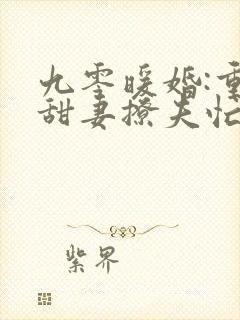 九零暖婚:重
甜妻撩夫忙
紫界